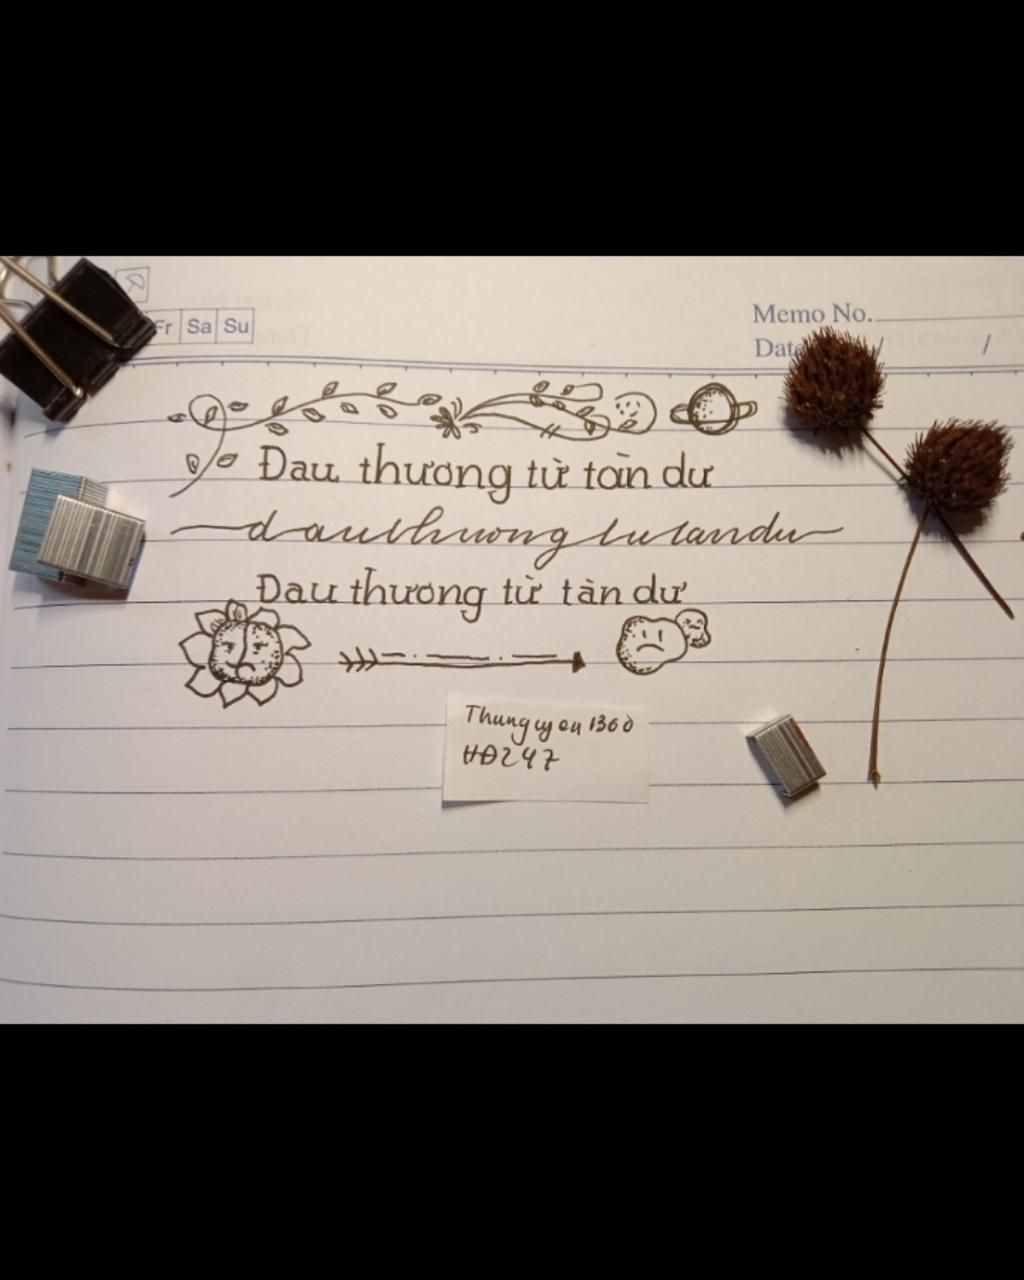 Fr Sa Su
Memo No.
Date / /
Đau thương từ tàn dư
dauthuongtutandu
Đau thương từ tàn dư
Thunguyen1360
HĐ247